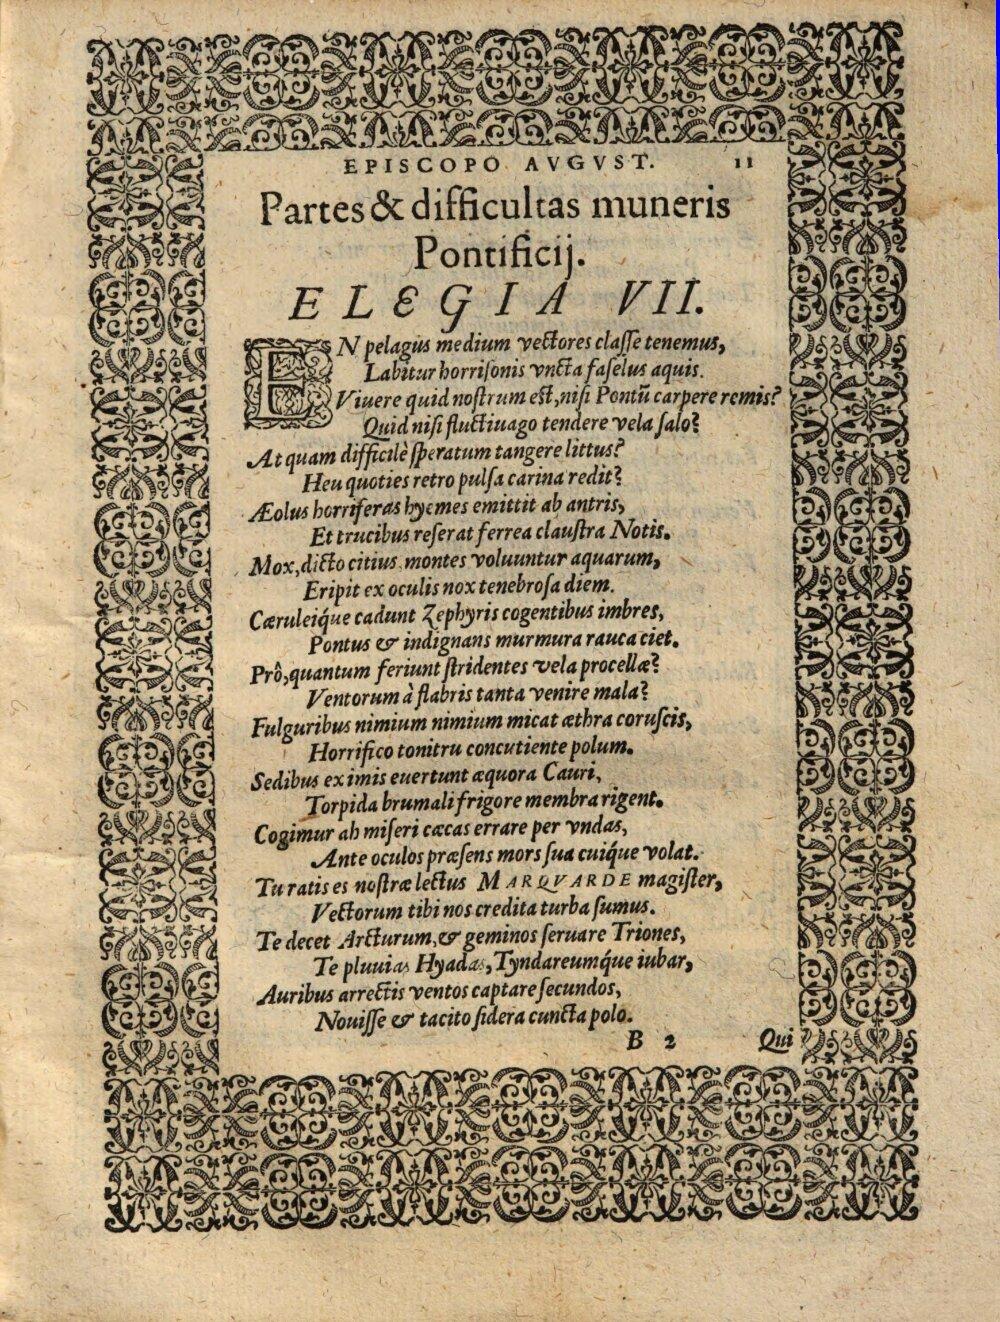 EPISCOPO AVGVST. 11
Partes & difficultas muneris
Pontificij.
ELEGIA VII.
EN pelagus medium vectores classe tenemus,
Labitur horrisonis vncta faselus aquis.
Viuere quid nostrum est, nisi Pontū carpere remis?
Quid nisi fluctiuago tendere vela salo?
At quam difficilè speratum tangere littus?
Heu quoties retro pulsa carina redit?
Æolus horriferas hyemes emittit ab antris,
Et trucibus reserat ferrea claustra Notis.
Mox, dicto citius, montes voluuntur aquarum,
Eripit ex oculis nox tenebrosa diem.
Cæruleiq́ue cadunt Zephyris cogentibus imbres,
Pontus & indignans murmura rauca ciet.
Prô, quantum feriunt stridentes vela procellæ?
Ventorum à flabris tanta venire mala?
Fulguribus nimium nimium micat æthra coruscis,
Horrifico tonitru concutiente polum.
Sedibus ex imis euertunt æquora Cauri,
Torpida brumali frigore membra rigent.
Cogimur ah miseri cæcas errare per vndas,
Ante oculos præsens mors sua cuiq́ue volat.
Tu ratis es nostræ lectus MARQVARDE magister,
Vectorum tibi nos credita turba sumus.
Te decet Arcturum, & geminos seruare Triones,
Te pluuias Hyadas, Tyndareumq́ue iubar,
Auribus arrectis ventos captare secundos,
Nouisse & tacito sidera cuncta polo.
B 2 Qui